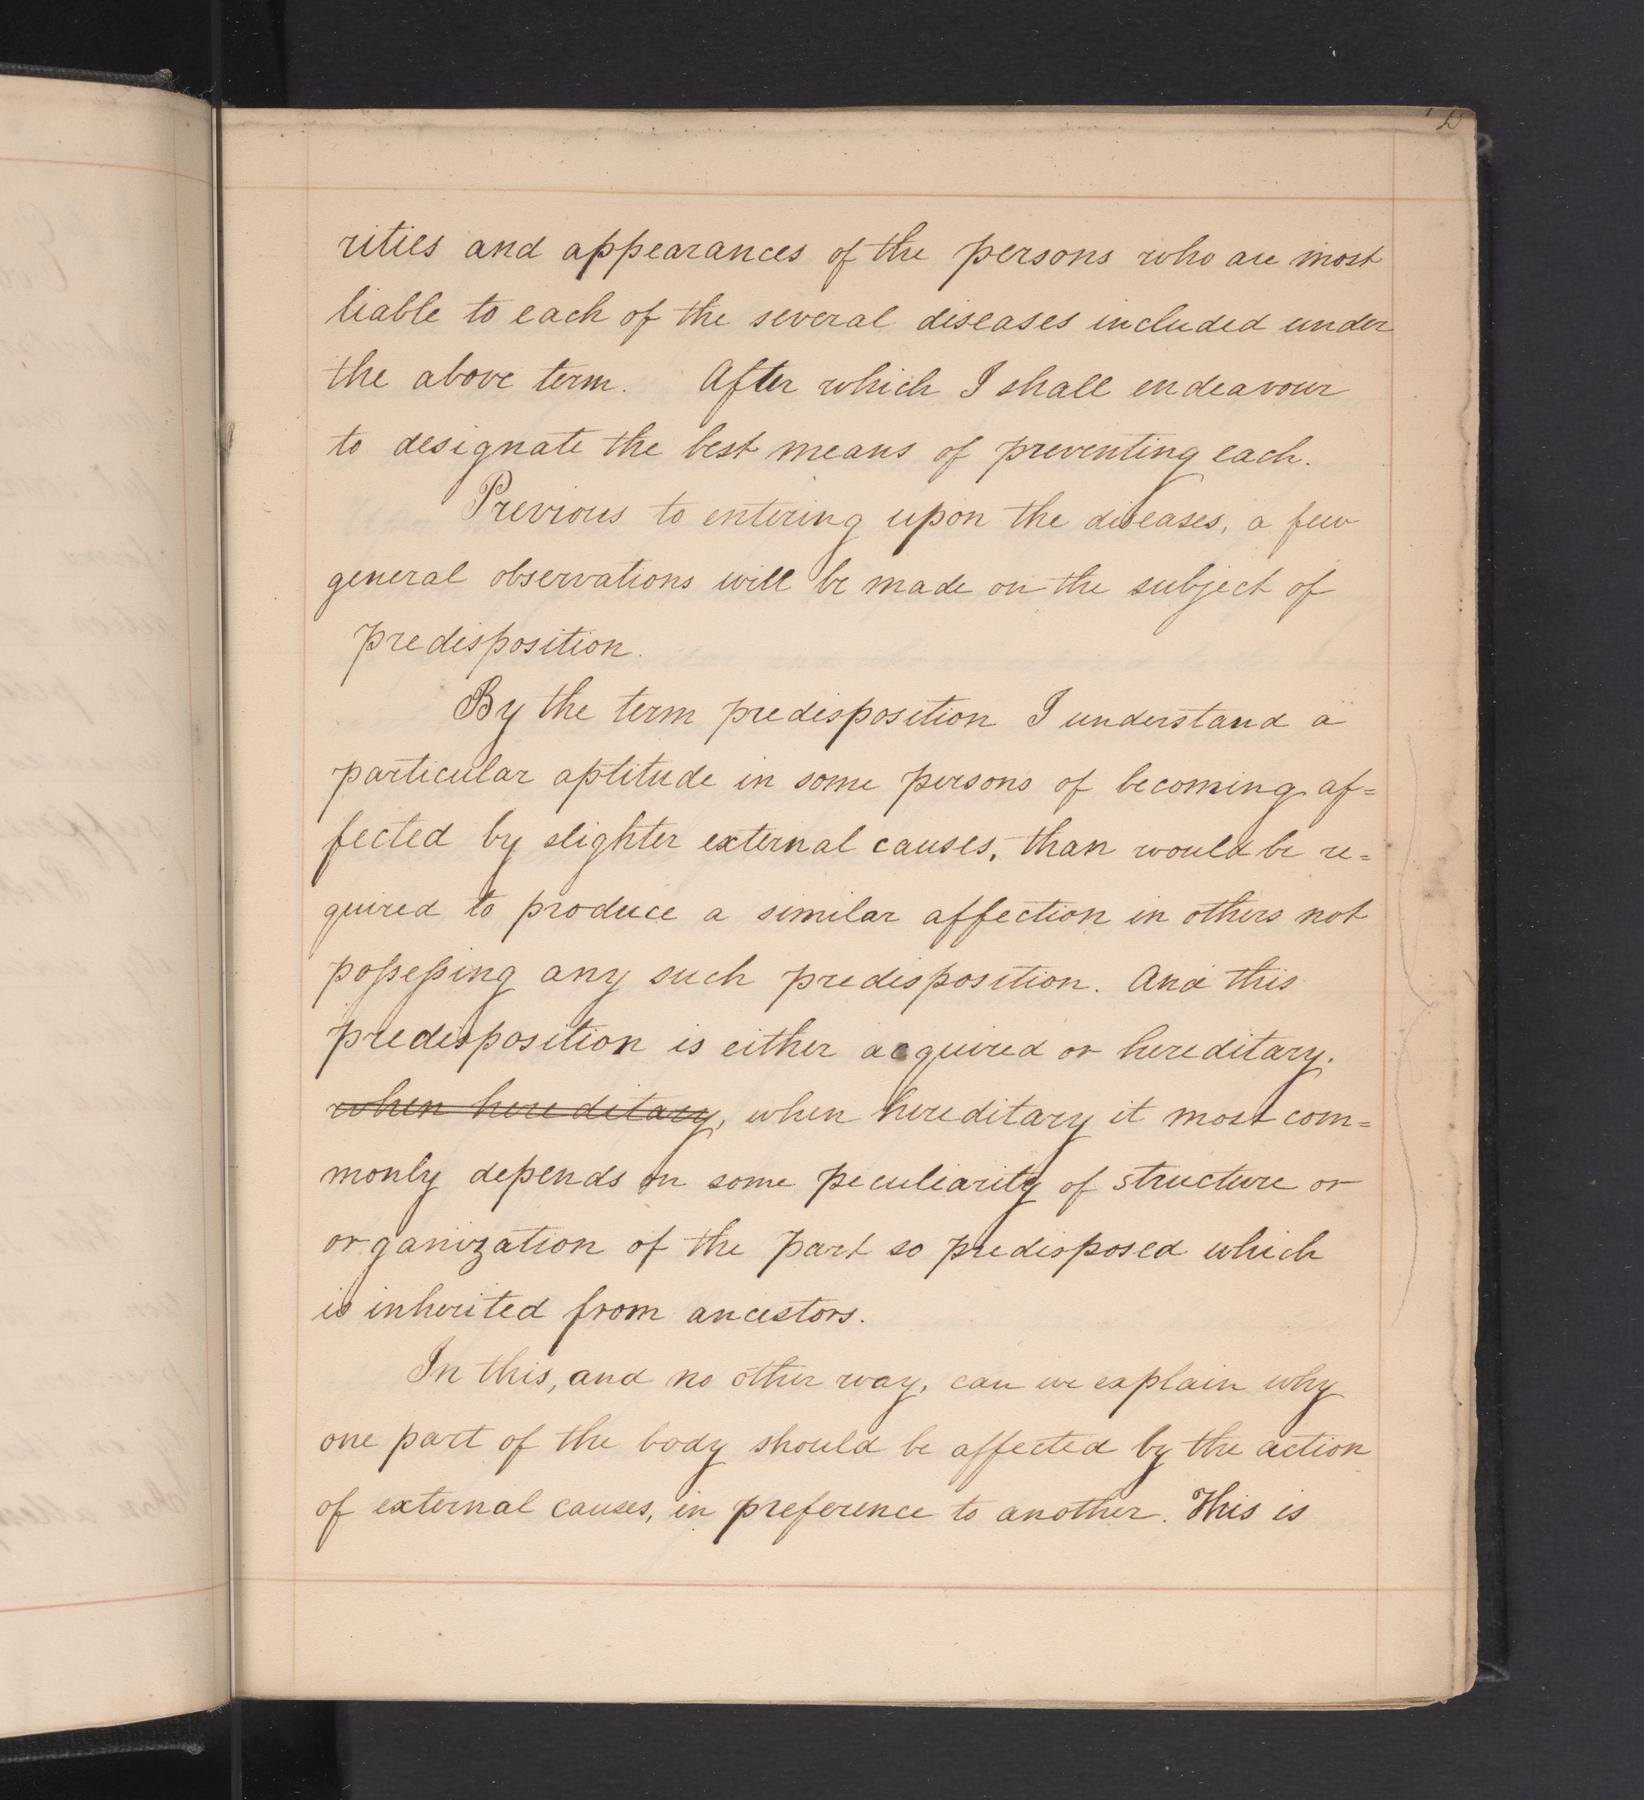 rities and appearances of the persons who are most
liable to each of the several diseases included under
the above term. After which I shall endeavour
to designate the best means of preventing each.
Previous to entering upon the diseases, a few
general observations will be made on the subject of
predisposition.
By the term predisposition I understand a
particular aptitude in some persons of becoming af=
fected by slighter external causes, than would be re=
quired to produce a similar affection in others not
possessing any such predisposition. And this
predisposition is either acquired or hereditary.
when hereditary, when hereditary it most com=
monly depends on some peculiarity of structure or
organization of the part so predisposed which
is inherited from ancestors.
In this, and no other way, can we explain why
one part of the body should be affected by the action
of external causes, in preference to another. This is